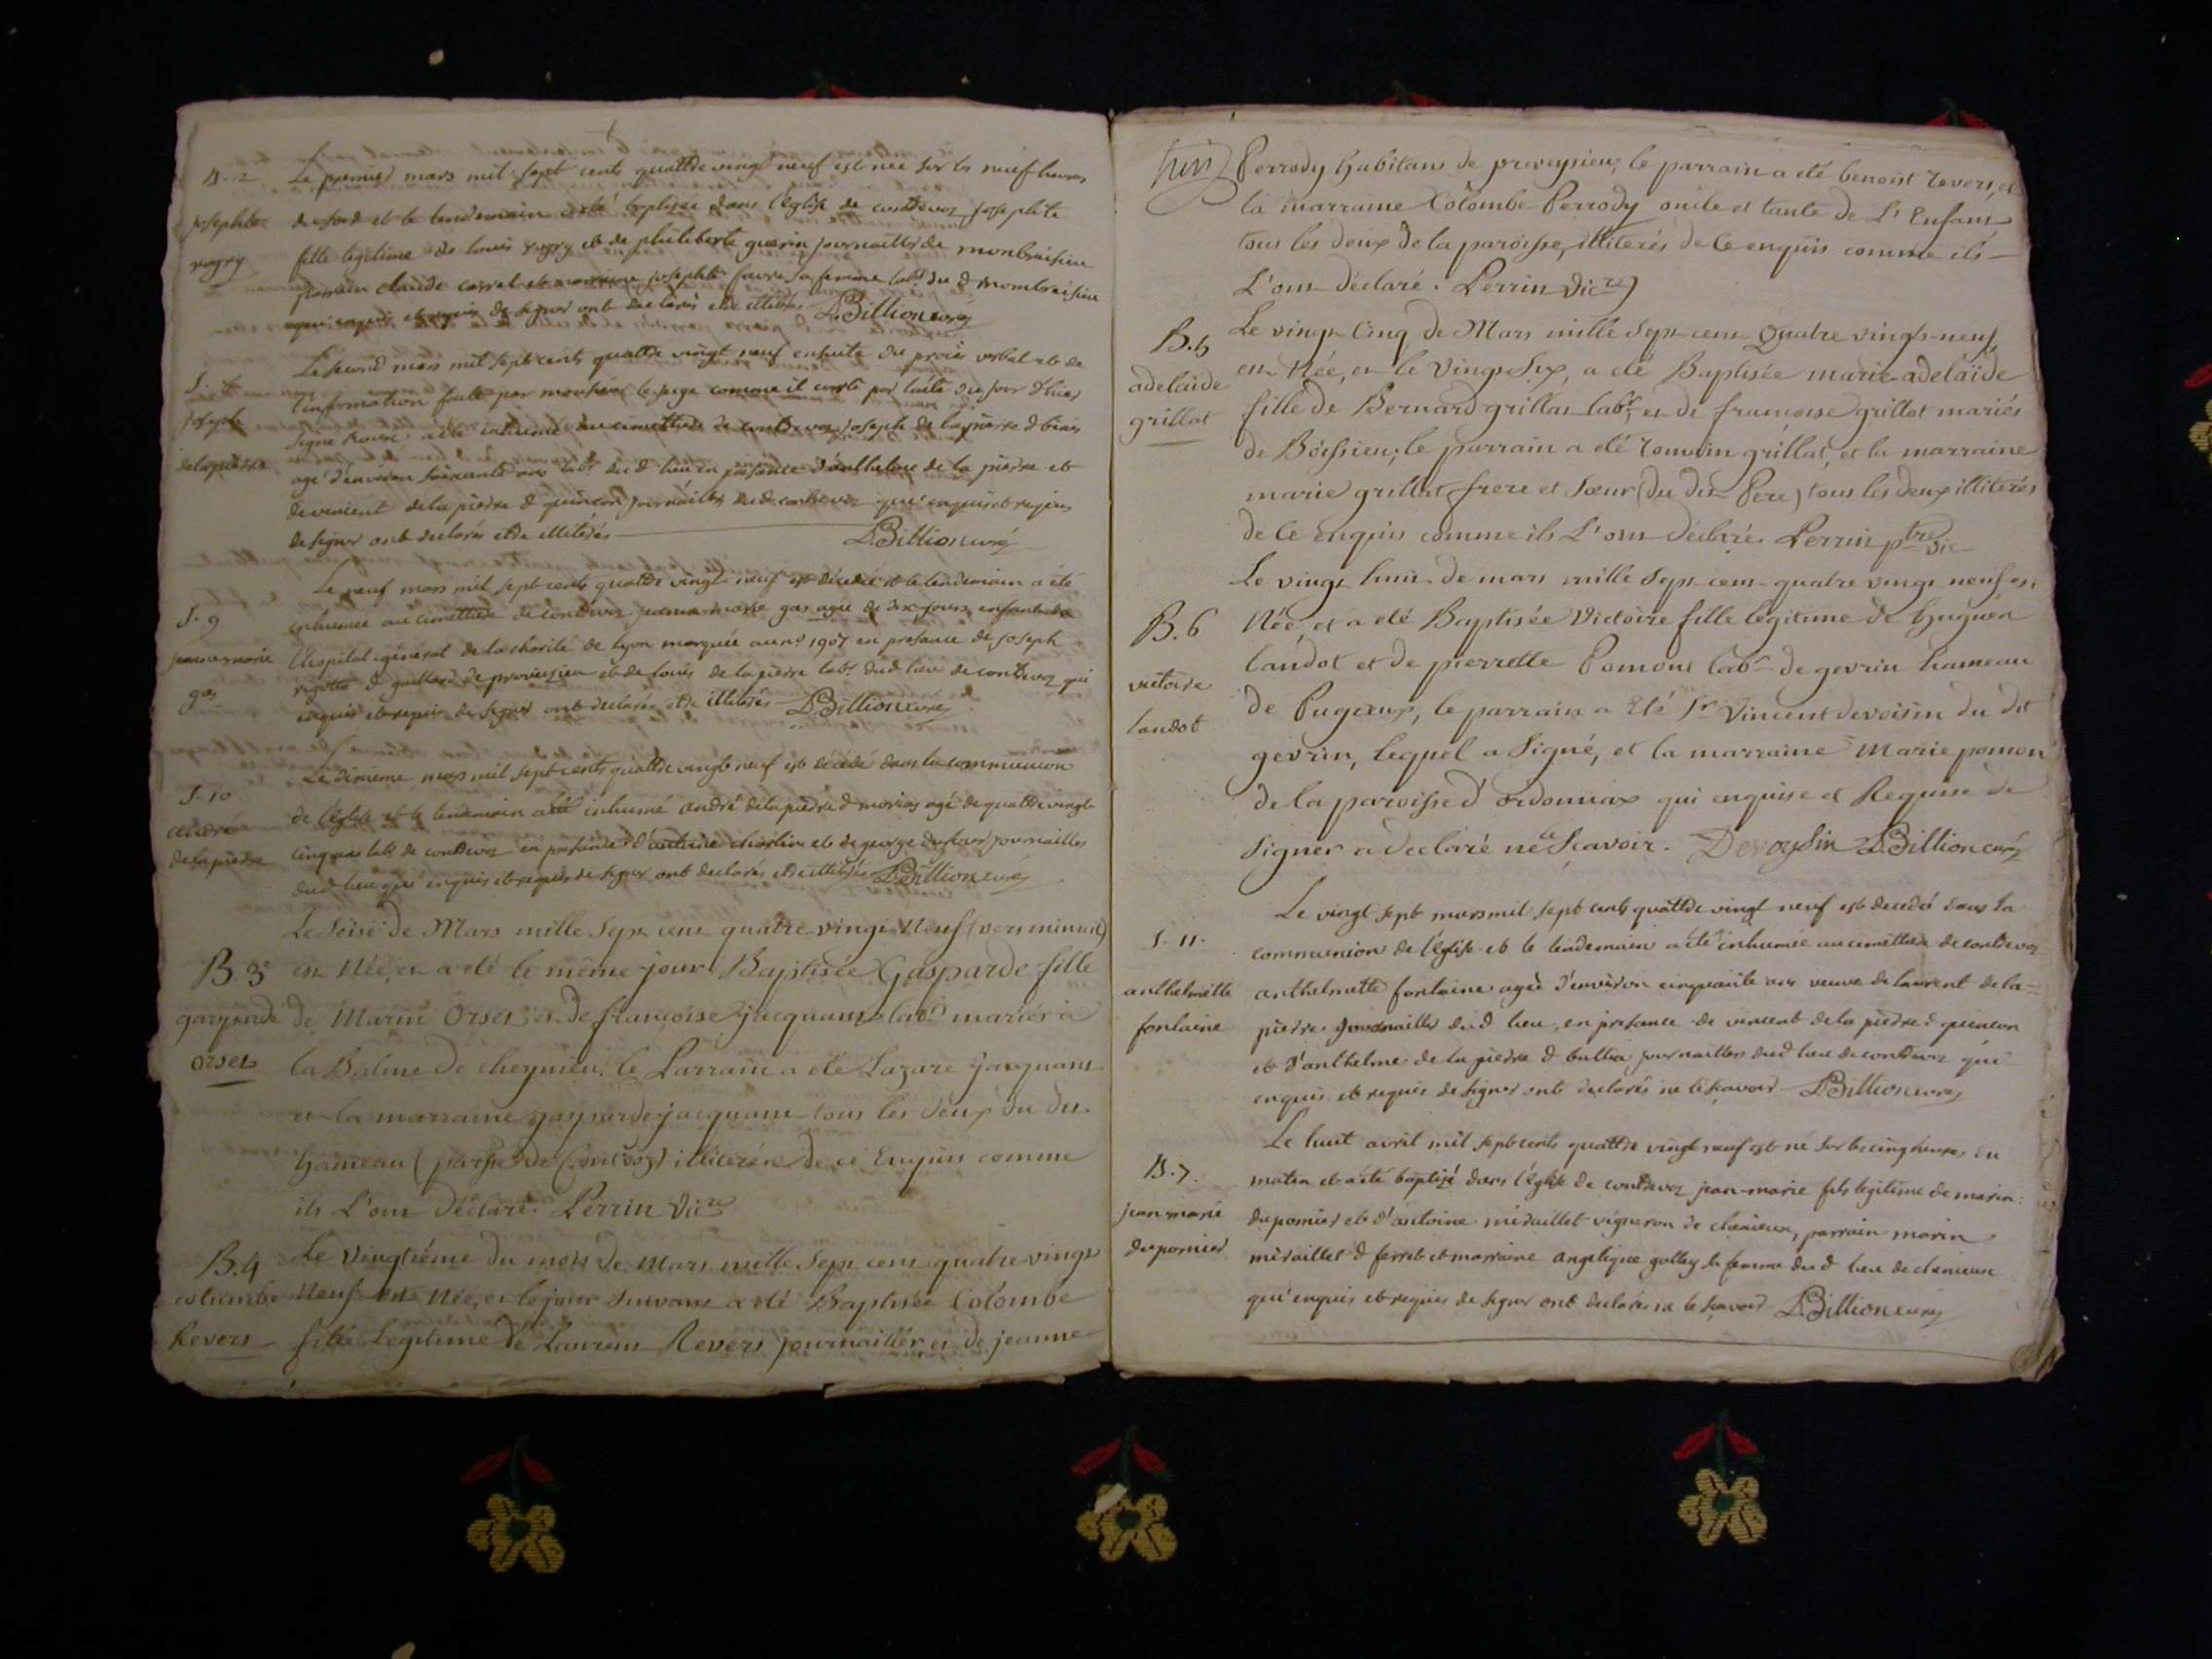 B. 2
josephte
vogry
Le premier mars mil sept cents quattre vingt neuf est née sur les neuf heures
du soir et le lendemain a été baptisée dans l'église de contrevoz josephte
fille legitime de louis vogry et de philiberte guerin journaillers de montbreisieu
parrain claude carrel et marraine josephte favre sa femme labr du d montbreisieu
enquis et requis de signer ont declarés etre illiterés D. Billion curé
S. 8
joseph
delapierre
Le second mars mil sept cents quattre vingt neuf ensuite du procès verbal et de
l'information faite par monsieur le juge comme il conste par l'acte du jour d'hier
signé a été inhumé au cimettiere de contrevoz joseph de la pierre d
agé d'environ soixante ans labr du d lieu en presence d'anthelme de la pierre et
de vincent de la pierre d quincon journaillers du d contrevoz qui enquis et requis
de signer ont declarés etre illiterés D. Billion curé
S. 9
jeanne marie
gas
Le neuf mars mil sept cents quattre vingt neuf est décédée et le lendemain a été
inhumée au cimettiere de contrevoz jeanne marie gas agée de dix jours enfant de
l'hospital general de la charité de Lyon marquée au no 1907 en presence de joseph
d de proveysieu et de louis de la pierre labr du d lieu de contrevoz qui
enquis et requis de signer ont declarés etre illiterés D. Billion curé
S. 10
andré
delapierre
Le dixieme mars mil sept cents quattre vingt neuf est décédé dans la communion
de l'église et le lendemain a été inhumé andré de la pierre d morias agé de quattre vingt
cinq ans labr de contrevoz en presence d'antoine charlin et de george dufour journaillers
du d lieu qui enquis et requis de signer ont declarés etre illiterés D. Billion curé
B. 3e
gasparde
orset
Le Seisé de Mars mille Sept cent quatre-vingt Neuf (vers minuit)
est Née, et a été le même jour Baptisée Gasparde fille
de Marin Orset et de françoise jacquant labrs mariés à
la Balme de cheynieu. le Parrain a été Lazare jacquant
et la marraine gasparde jacquant tous les deux du dit
hameau (parsse de Contrvoz) illiterés de ce Enquis comme
ils L'ont Déclaré. Perrin Vicre
B. 4
colombe
Revers
Le Vingtiéme du mois de Mars mille Sept cent quatre vingt
Neuf est Née, et le jour Suivant a été Baptisée Colombe
fille Legitime de Laurent Revers journaillier et de jeanne
huit
Perrody habitans de preveysieu; le parrain a été benoist revers, et
la marraine Colombe Perrody oncle et tante de L'Enfant
tous les deux de la paroisse, illiterés de ce enquis comme ils
L'ont déclaré. Perrin Vicre
B. 5
adelaide
grillat
Le vingt Cinq de Mars mille Sept cent Quatre vingts-neuf
est Née, et le Vingt Six, a été Baptisée marie-adelaïde
fille de Bernard grillat labr, et de françoise grillat mariés
de Boissieu; le parrain a été romain grillat, et la marraine
marie grillat, frere et Sœur (du dit Pere) tous les deux illiterés
de ce enquis comme ils L'ont déclaré. Perrin ptre vic
B. 6
victoire
landot
Le vingt huit de mars mille Sept cent quatre vingt neuf est
Née, et a été Baptisée Victoire fille légitime de huguen
landot et de pierrette Pomont labr de gevrin hameau
de Pugieux, le parrain a Eté Sr Vincent devoisin du dit
gevrin, lequel a Signé, et la marraine Marie pomon
de la paroisse d'ordonnax qui enquise et Requise de
Signer a declaré ne le Scavoir. Devoysin D. Billion curé
S. 11.
anthelmette
fontaine
Le vingt sept mars mil sept cents quattre vingt neuf est decedé dans la
communion de l'église et le lendemain a été inhumée au cimettiere de contrevoz
anthelmette fontaine agée d'environ cinquante ans veuve de laurent de la=
pierre journaillers du d lieu en presence de vincent de la pierre d quincon
et d'anthelme de la pierre d bullia journaillers du d lieu de contrevoz qui
enquis et requis de signer ont declarés ne le scavoir D. Billion curé
B. 7.
jean marie
dupornier
Le huit avril mil sept cents quattre vingt neuf est né sur les cinq heures du
matin et a été baptizé dans l'église de contrevoz jean-marie fils legitime de marin
dupornier et d'antoine miraillet vigneron de cheinieux, parrain marin
miraillet d ferrit et marraine angelique golley sa femme du d lieu de cheinieux
qui enquis et requis de signer ont declarés ne le scavoir D. Billion curé